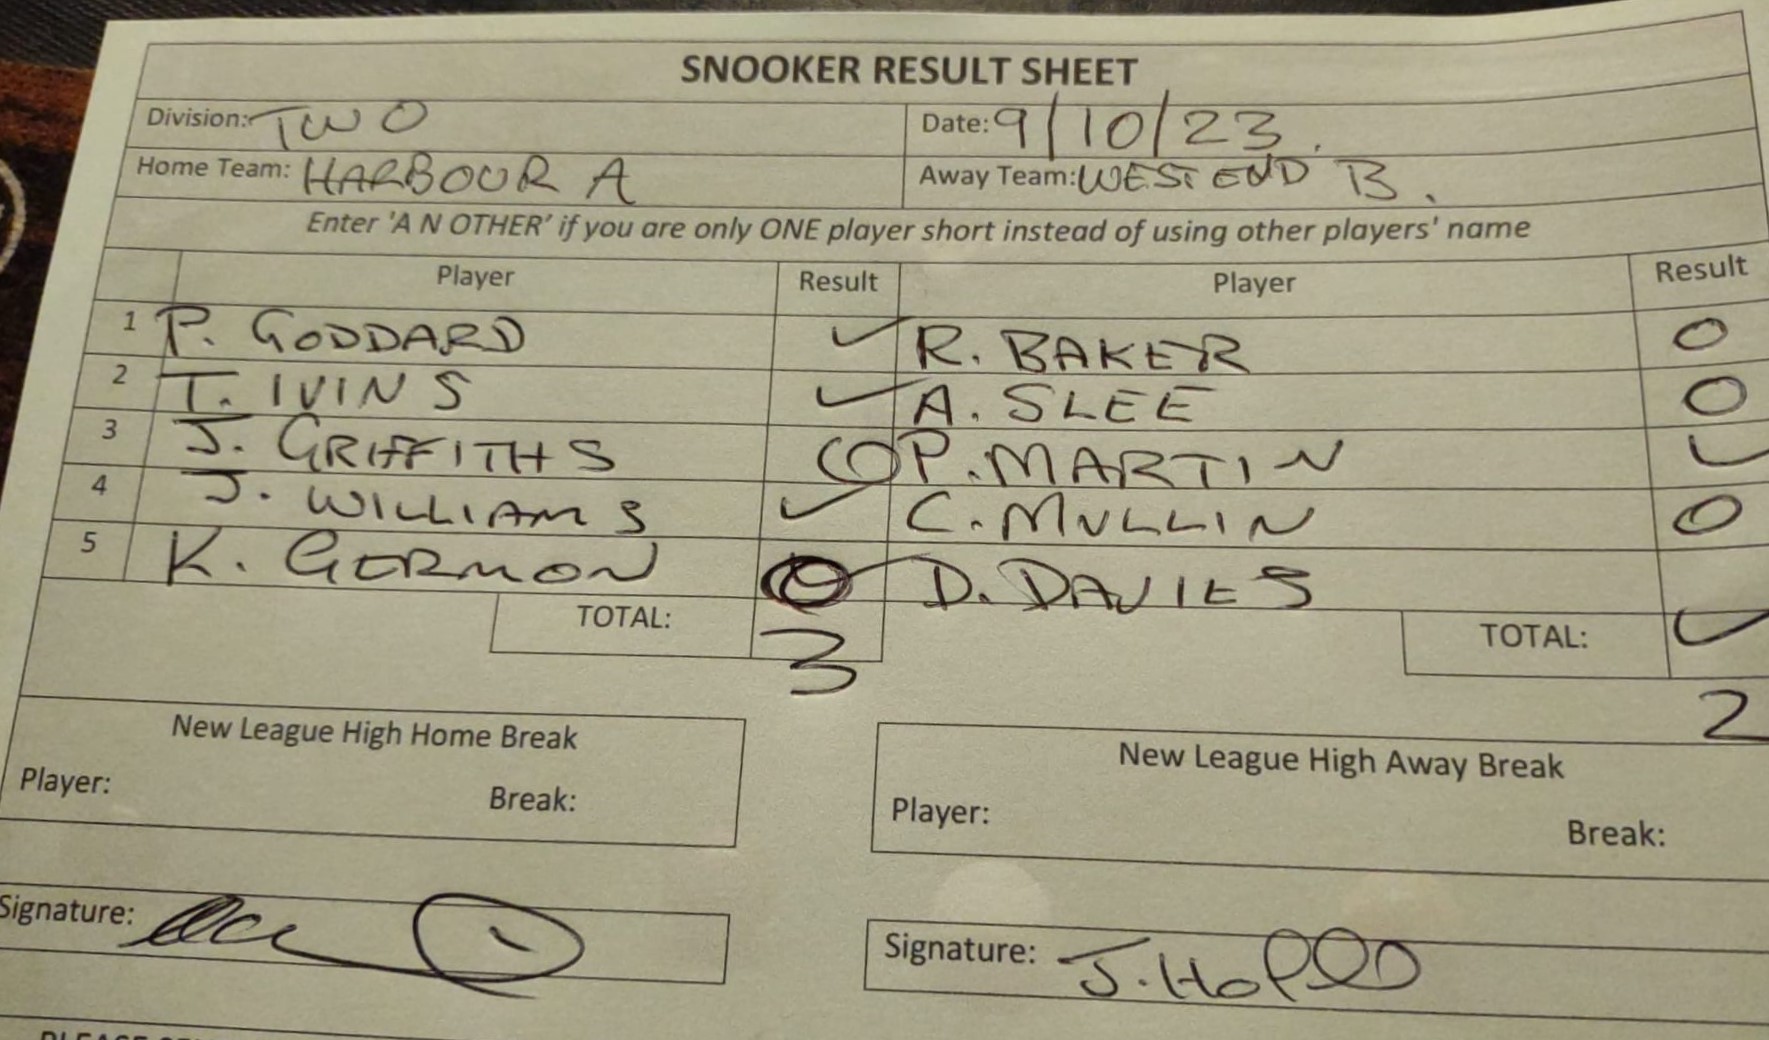 SNOOKER RESULT SHEET
Division: TWO Date: 9/10/23.
Home Team: HARBOUR A Away Team: WEST END B.
Enter 'A N OTHER' if you are only ONE player short instead of using other players' name
Player Result Player Result
1 P. GODDARD ✓ R. BAKER 0
2 T. IVINS ✓ A. SLEE 0
3 J. GRIFFITHS 0 P. MARTIN ✓
4 J. WILLIAMS ✓ C. MULLIN 0
5 K. GERMON 0 D. DAVIES ✓
TOTAL: 3 TOTAL: 2
New League High Home Break New League High Away Break
Player: Break: Player: Break:
Signature: Signature: J.